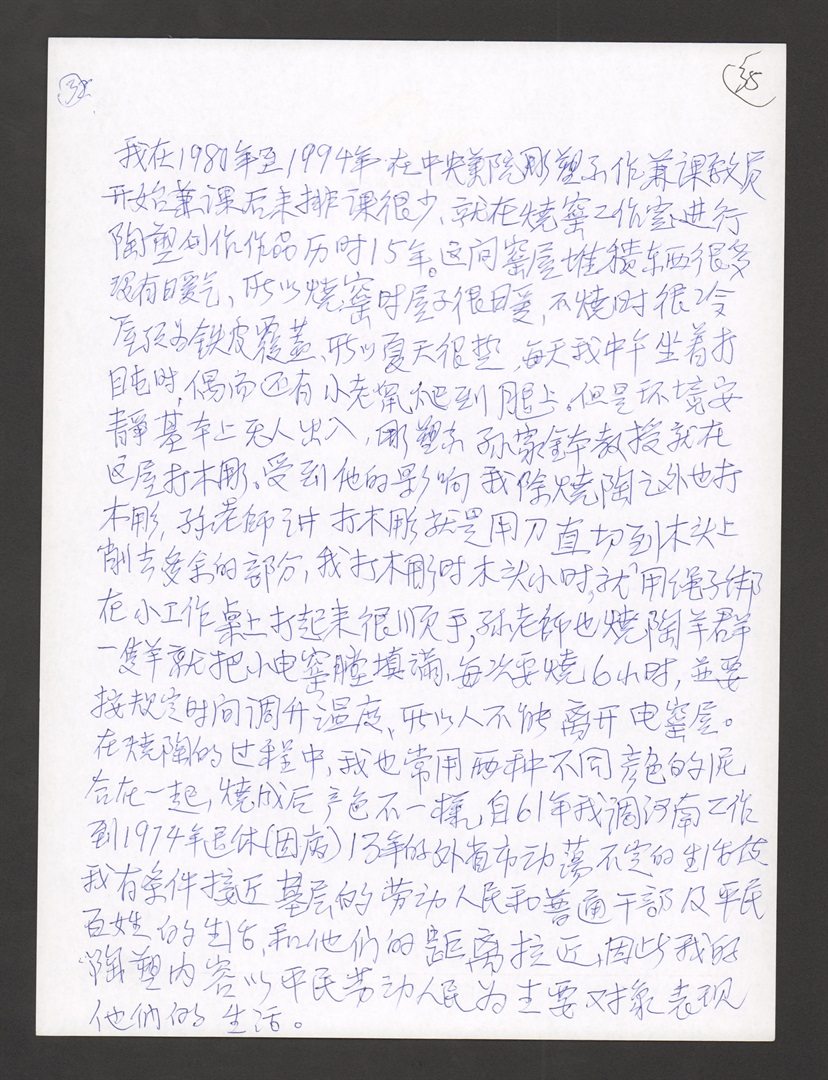 38
38
我在1980年至1994年在中央美院彫塑系作兼課教员
开始兼课后来排课很少、就在烧窑工作室进行
陶塑创作作品历时15年。这间窑屋堆積东西很多
没有暖气，所以烧窑时屋子很暖，不烧时很冷
屋顶为铁皮覆蓋、所以夏天很热，每天我中午坐着打
盹时，偶而还有小老鼠爬到腿上。但是环境安
静基本上无人出入，彫塑系孙家鉢教授就在
这屋打木彫、受到他的影响我除烧陶之外也打
木彫，孙老師讲打木彫就是用刀直切到木头上
削去多余的部分，我打木彫时木头小时，就用绳子绑
在小工作桌上打起来很顺手，孙老師也烧陶羊群
一隻羊就把小电窑膛填滿、每次要烧6小时，並要
按规定时间调升温度、所以人不能离开电窑屋。
在烧陶的过程中，我也常用两种不同颜色的泥
合在一起，烧成后产色不一樣，自61年我调河南工作
到1974年退休（因病）13年的外省市动蕩不定的生活使
我有条件接近基层的劳动人民和普通干部及平民
百姓的生活，和他们的距离拉近，因此我的
陶塑内容以平民劳动人民为主要对象表现
他們的生活。